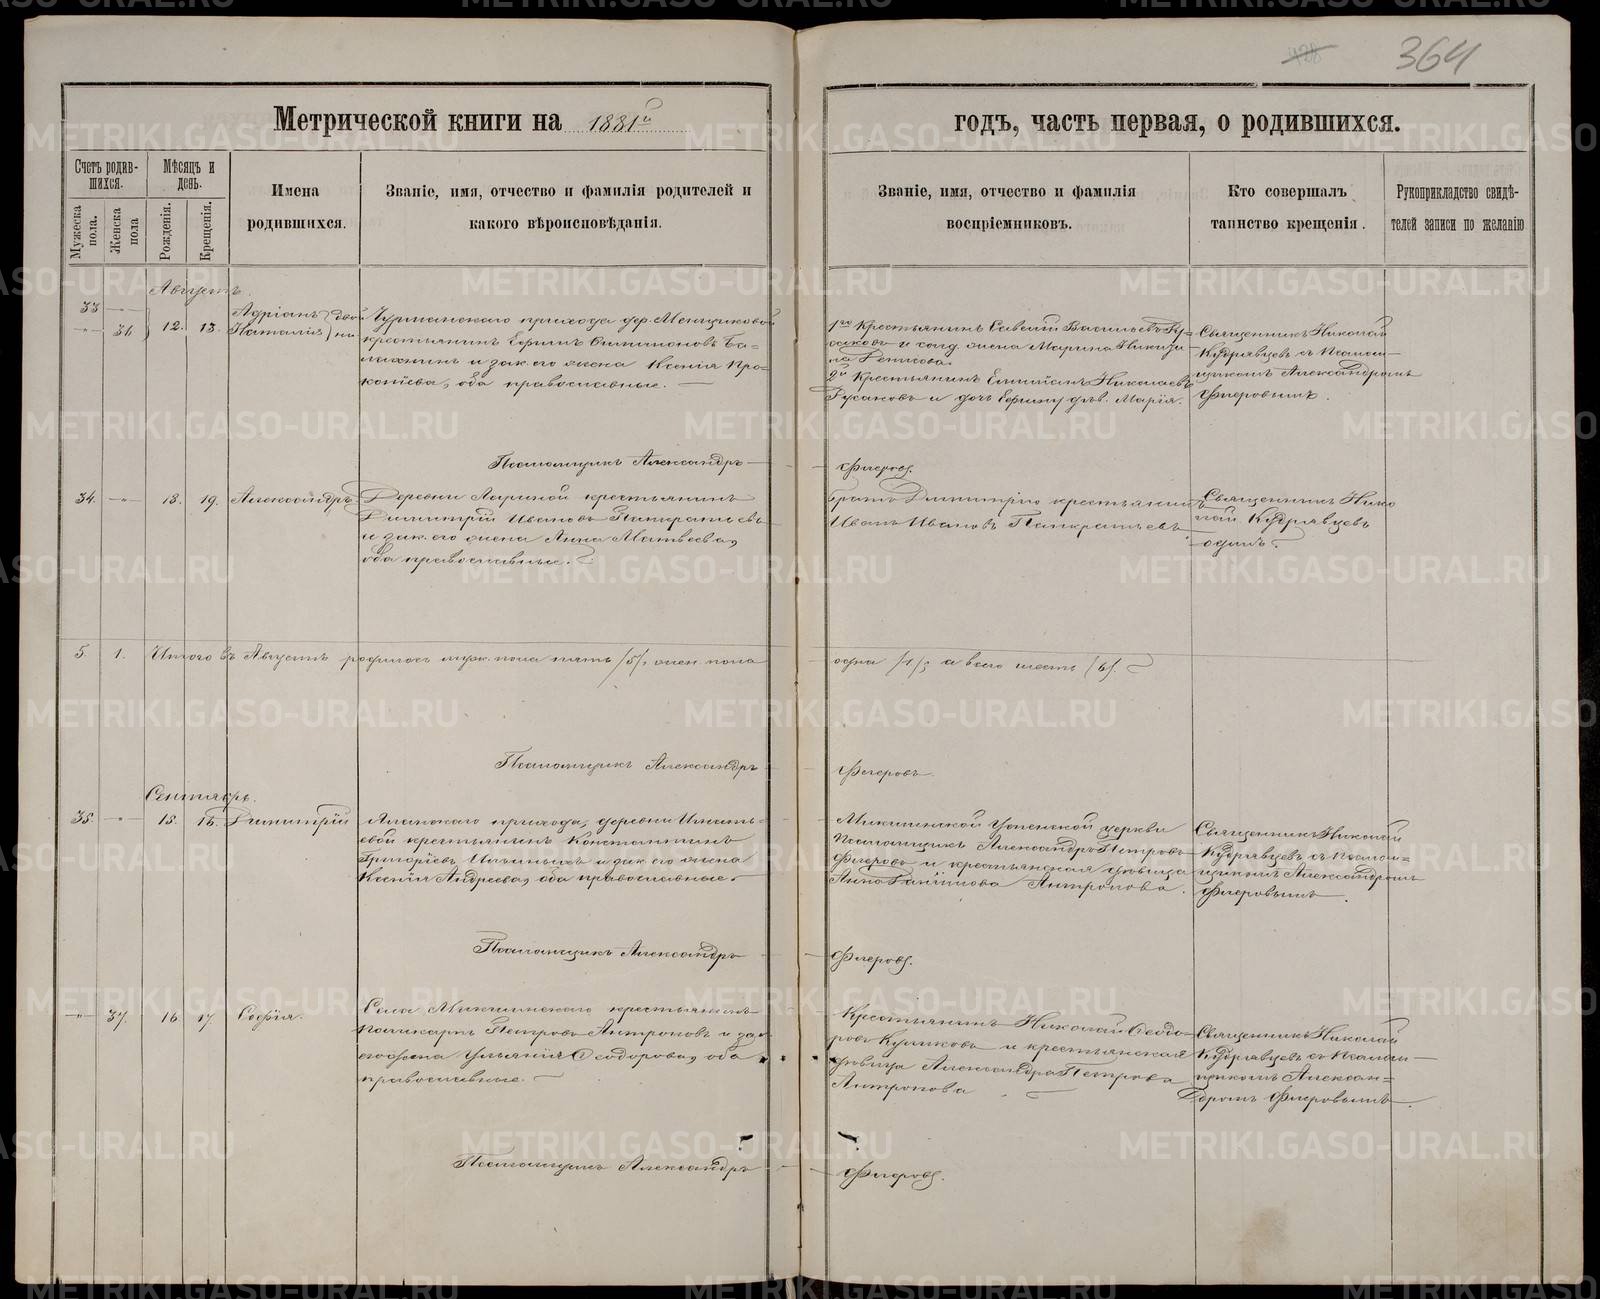 364
Метрической книги на 1881й
годъ, часть первая, о родившихся.
Счетъ родив-
шихся.
Мужеска пола.
Женска пола
Мѣсяцъ и
день.
Рожденія.
Крещенія.
Имена
родившихся.
Званіе, имя, отчество и фамилія родителей и
какого вѣроисповѣданія.
Званіе, имя, отчество и фамилія
воспріемниковъ.
Кто совершалъ
таинство крещенія.
Рукоприкладство свидѣ-
телей записи по желанію
Августъ.
33
12. 13.
Адріанъ
Наталія
прихода дер.
крестьянинъ Ефимъ
и зак. его жена Ксенія Про-
копіева, оба православные.
1го Крестьянинъ Савелій Васильевъ
и жена Марина
2й Крестьянинъ Емиліанъ Николаевъ
Русаковъ и дочь дѣв. Марія.
Священникъ Николай
Кудрявцевъ съ Псалом-
щикомъ Александромъ
Флеровымъ.
Псаломщикъ Александръ
Флеровъ.
34. 18. 19. Александръ
Деревни крестьянинъ
Димитрій Ивановъ Панкратьевъ
и зак. его жена Анна Матвеева,
оба православные.
братъ Димитрію крестьянинъ
Иванъ Ивановъ Панкратьевъ
Священникъ Нико
лай Кудрявцевъ
одинъ.
5. 1. Итого въ Августѣ родилось муж. пола пять /5/, жен. пола
одна /1/; а всего шесть /6/.
Псаломщикъ Александръ
Флеровъ.
Сентябрь.
35. 15. 16. Димитрій
прихода, деревни Игнать-
евой крестьянинъ Константинъ
Григоріевъ и зак. его жена
Ксенія Андреева, оба православные.
Микшинской Успенской церкви
Псаломщикъ Александръ Петровъ
Флеровъ и крестьянская дѣвица
Анна Антропова.
Священникъ Николай
Кудрявцевъ съ Псалом=
щикомъ Александромъ
Флеровымъ.
Псаломщикъ Александръ
Флеровъ.
37. 16. 17. Софія.
Села Микшинскаго крестьянинъ
Поликарпъ Петровъ Антроповъ и зак.
его жена Ульянія Ѳеодорова, оба
православные.
Крестьянинъ Николай Ѳеодо-
ровъ Куликовъ и крестьянская
дѣвица Александра Петрова
Антропова
Священникъ Николай
Кудрявцевъ съ Псалом
щикомъ Алексан=
дромъ Флеровымъ.
Псаломщикъ Александръ
Флеровъ.
METRIKI.GASO-URAL.RU